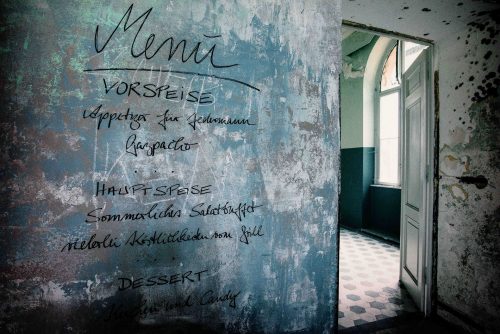 Menü
VORSPEISE
Appetizer für Jedermann
Gazpacho
...
HAUPTSPEISE
Sommerliches Salatbuffet
vielerlei Köstlichkeiten vom Grill
...
DESSERT
und Candy